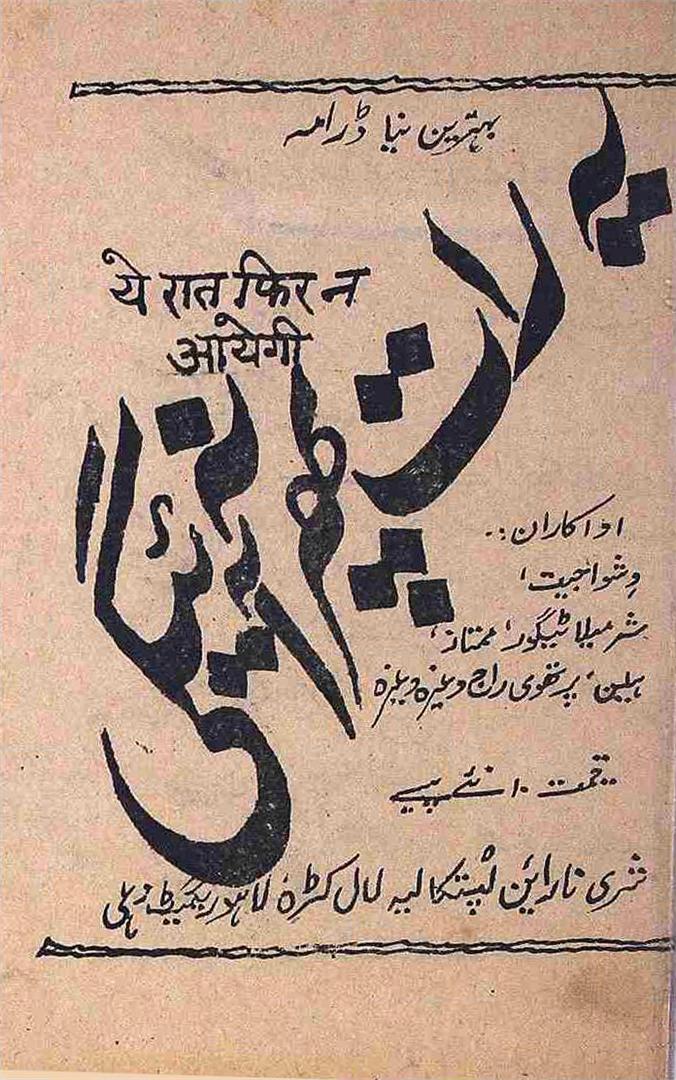 بہترین نیا ڈرامہ
یہ
رات
پھر
نہ آئیگی
ये रात फिर न
आयेगी
اداکاران:..
وشواجیت،
شرمیلا ٹیگور، ممتاز،
ہیلین، پرتھوی راج وغیرہ وغیرہ
قیمت ۱۰ نئے پیسے
شری نارائن پُستکالیہ لال کٹرہ لاہوریگیٹ دہلی